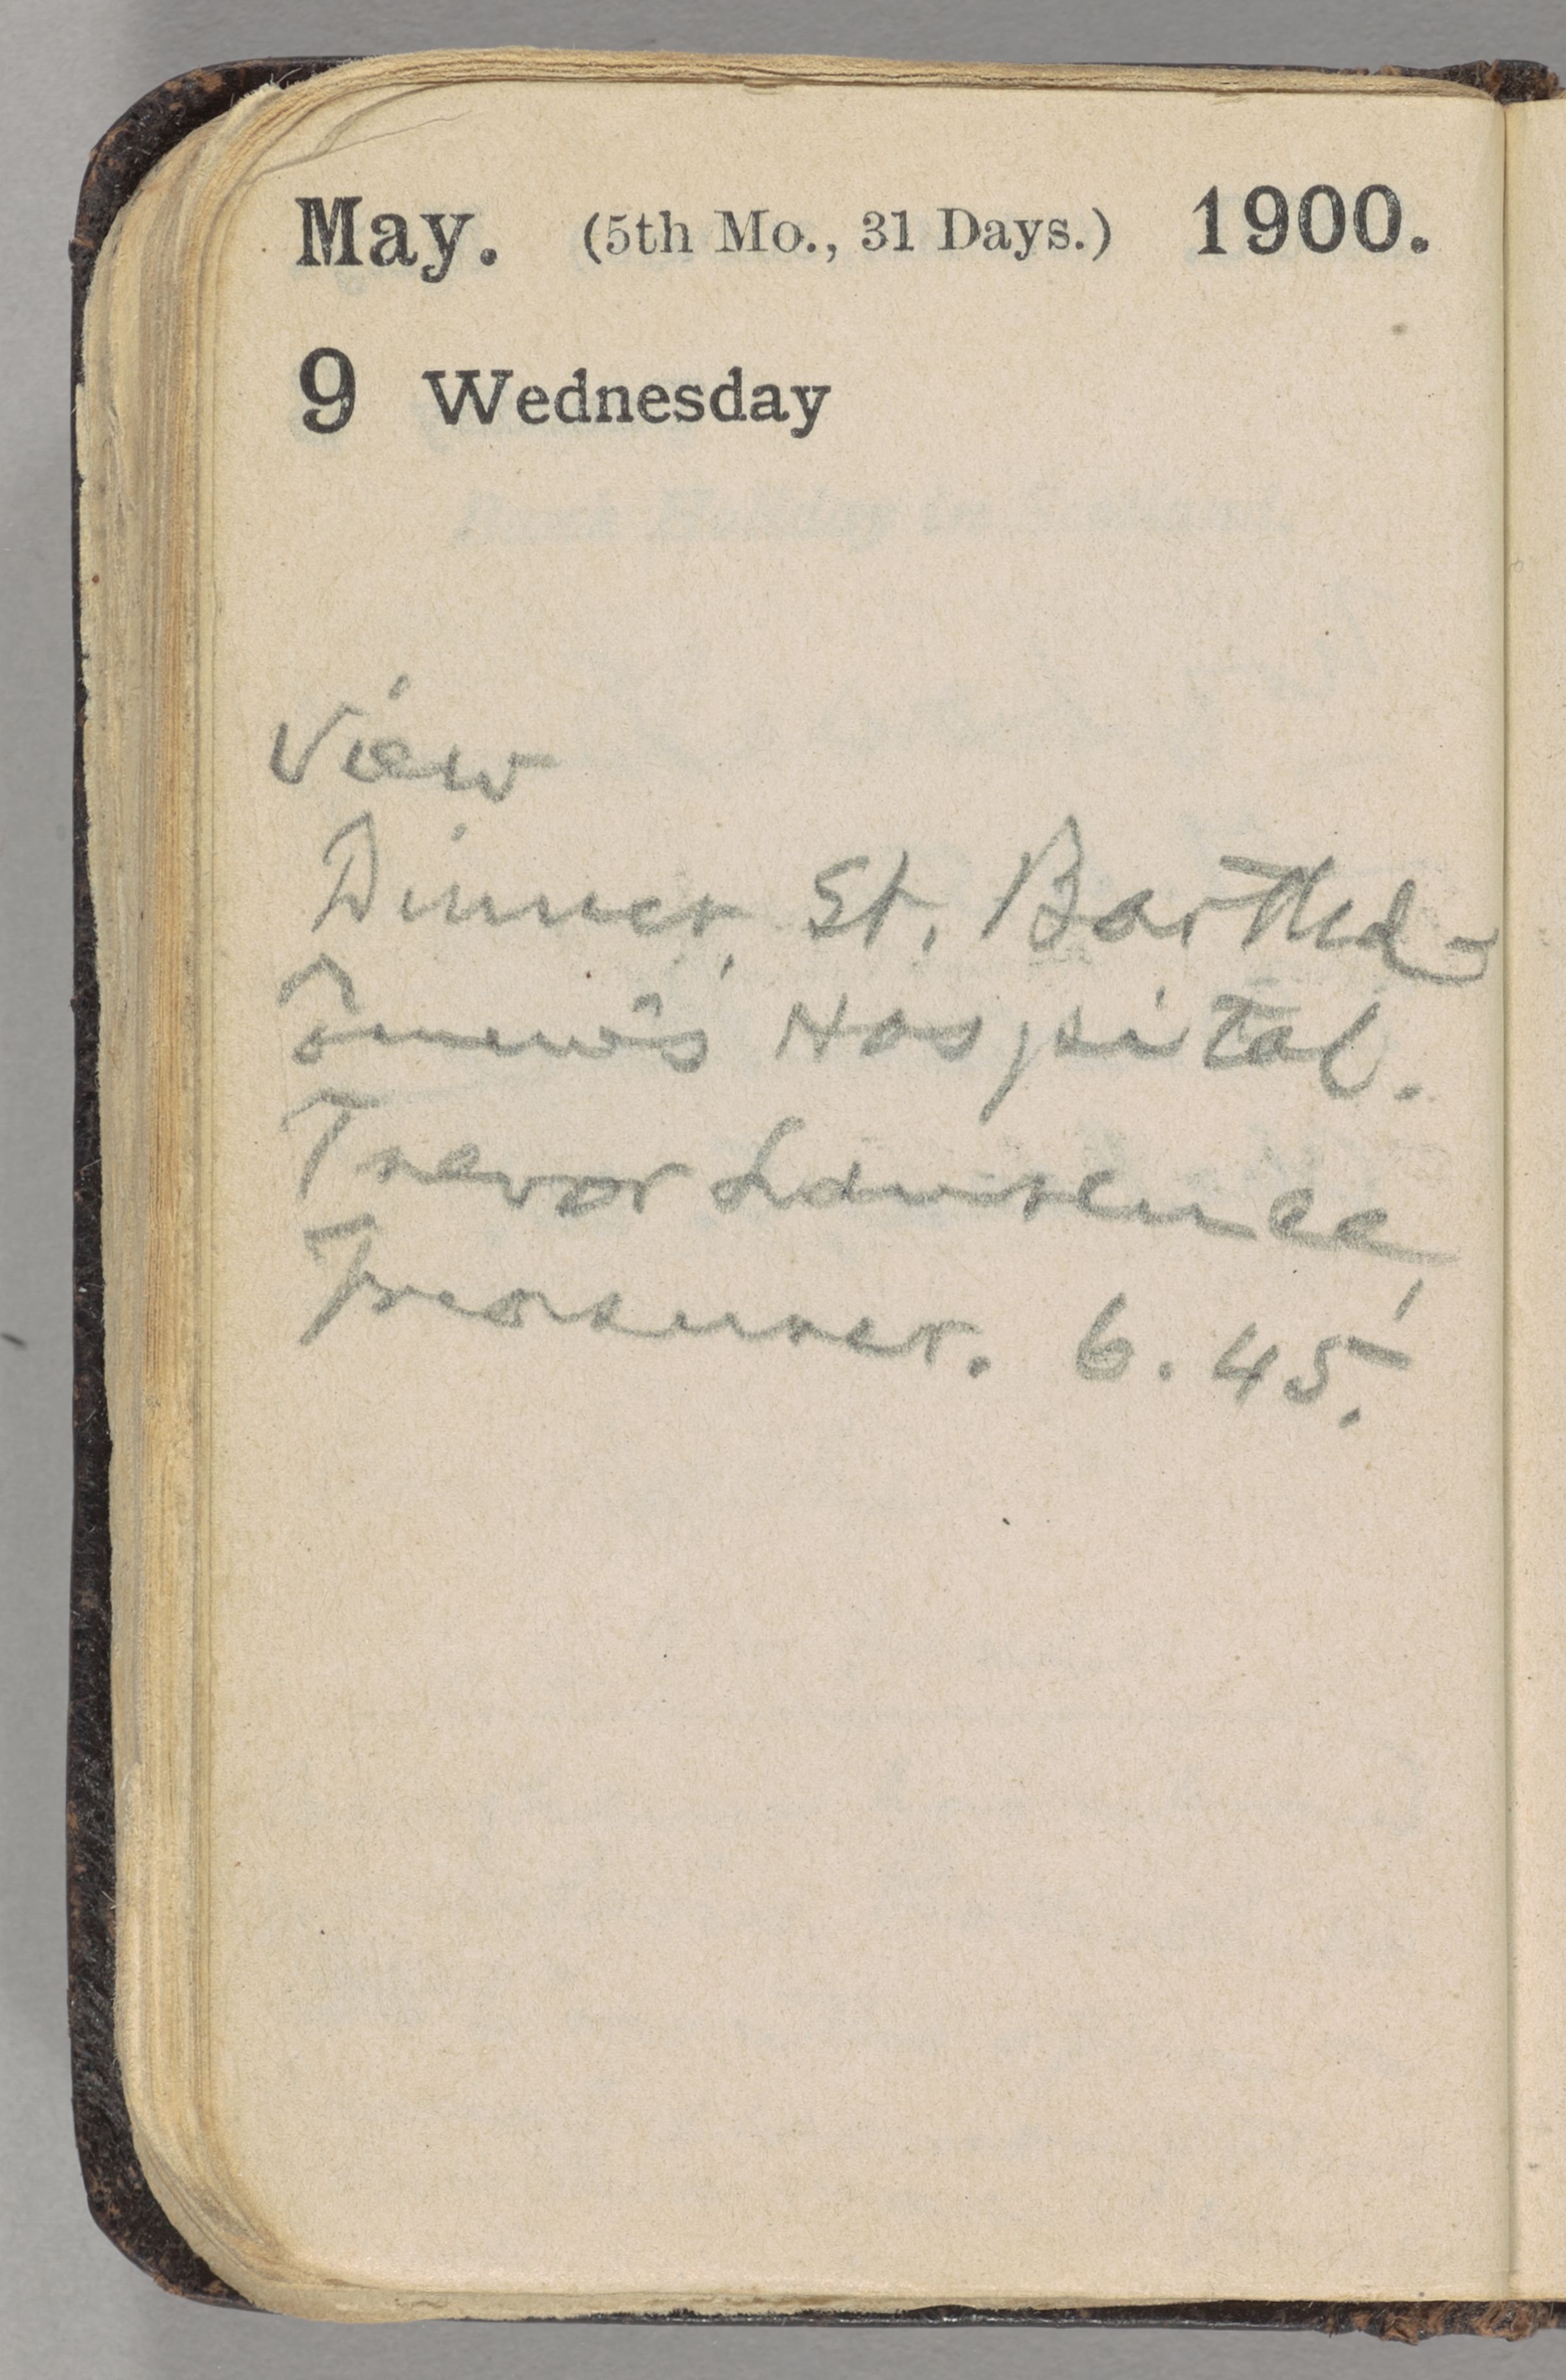 May. (5th Mo., 31 Days.) 1900.
9 Wednesday
View
Dinner, St. Barthol-
omew's Hospital.
Trevor Lawrence,
Treasurer. 6.45.